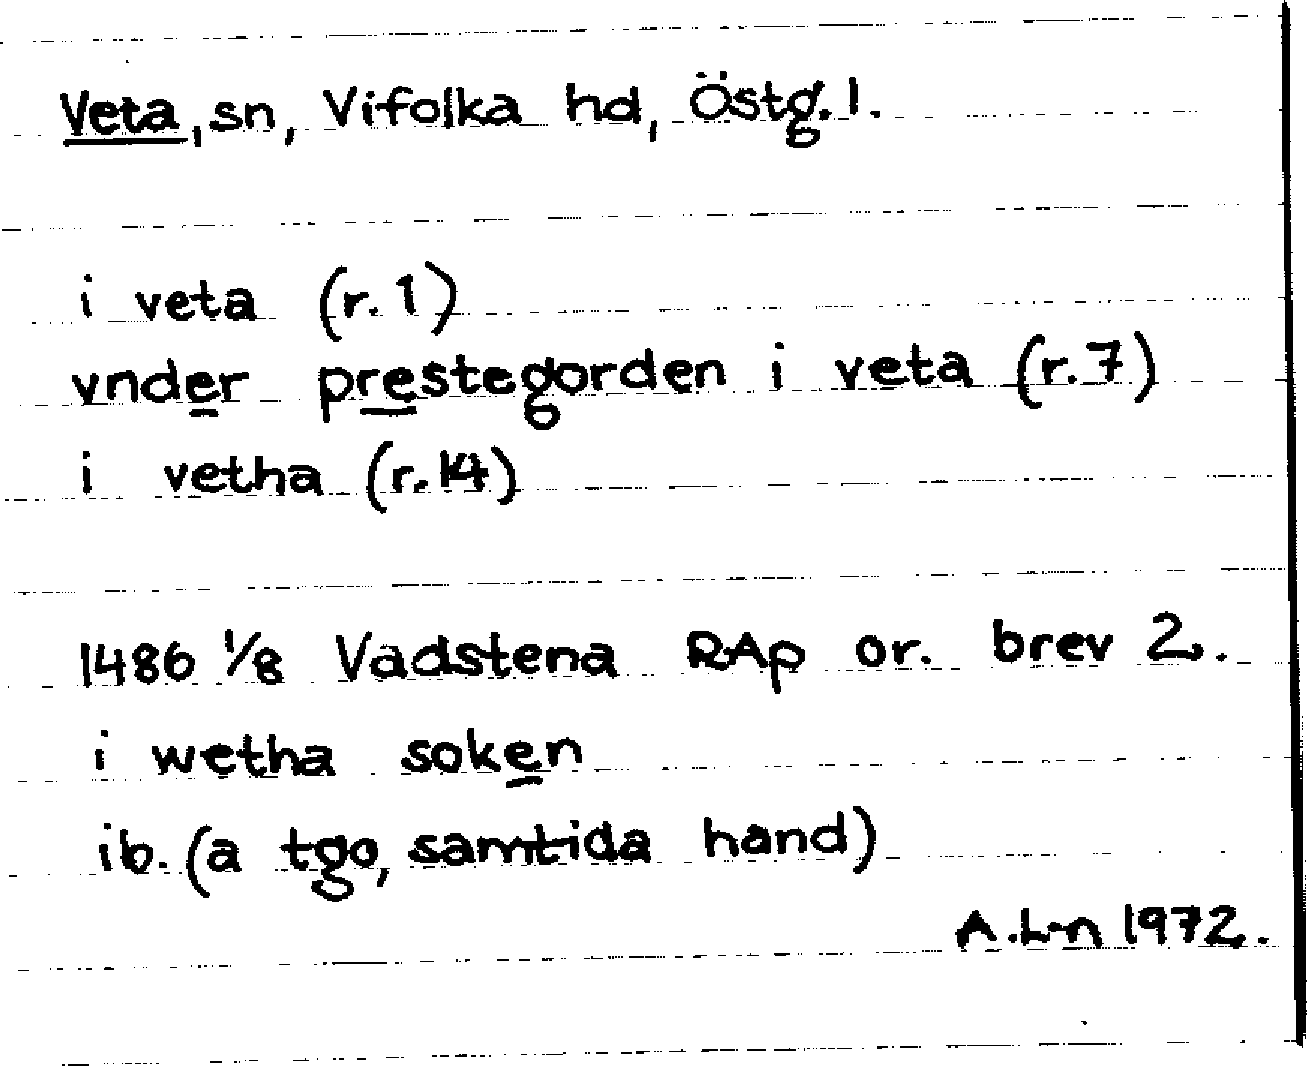 Veta, sn, Vifolka hd, Östg. l.
i veta (r. 1)
vnder prestegorden i veta (r. 7)
i vetha (r. 14)
1486 1/8 Vadstena RAp or. brev 2.
i wetha soken
ib. (a tgo, samtida hand)
A. L-n 1972.